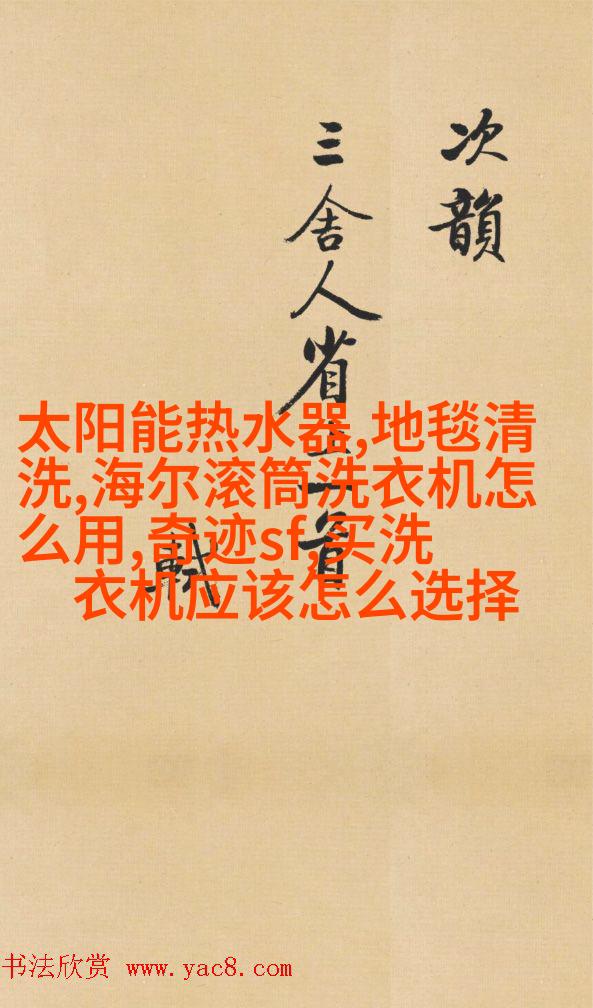 次韻
三舍人省上一首
軾
太阳能热水器,地毯清
洗,海尔滚筒洗衣机怎
么用,奇迹sf,买洗
衣机应该怎么选择
书法欣赏 www.yac8.com